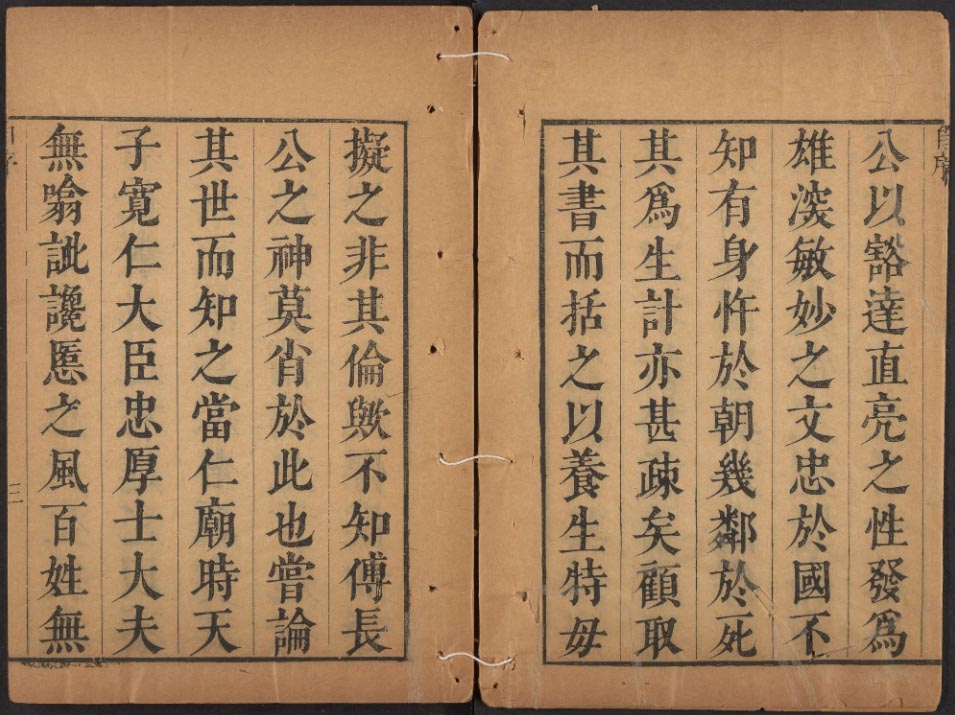 公以豁達直亮之性發爲
雄深敏妙之文忠於國不
知有身忤於朝幾鄰於死
其爲生計亦甚疎矣顧取
其書而括之以養生特毋
擬之非其倫歟不知傅長
公之神莫肖於此也嘗論
其世而知之當仁廟時天
子寬仁大臣忠厚士大夫
無噏訿讒慝之風百姓無
三